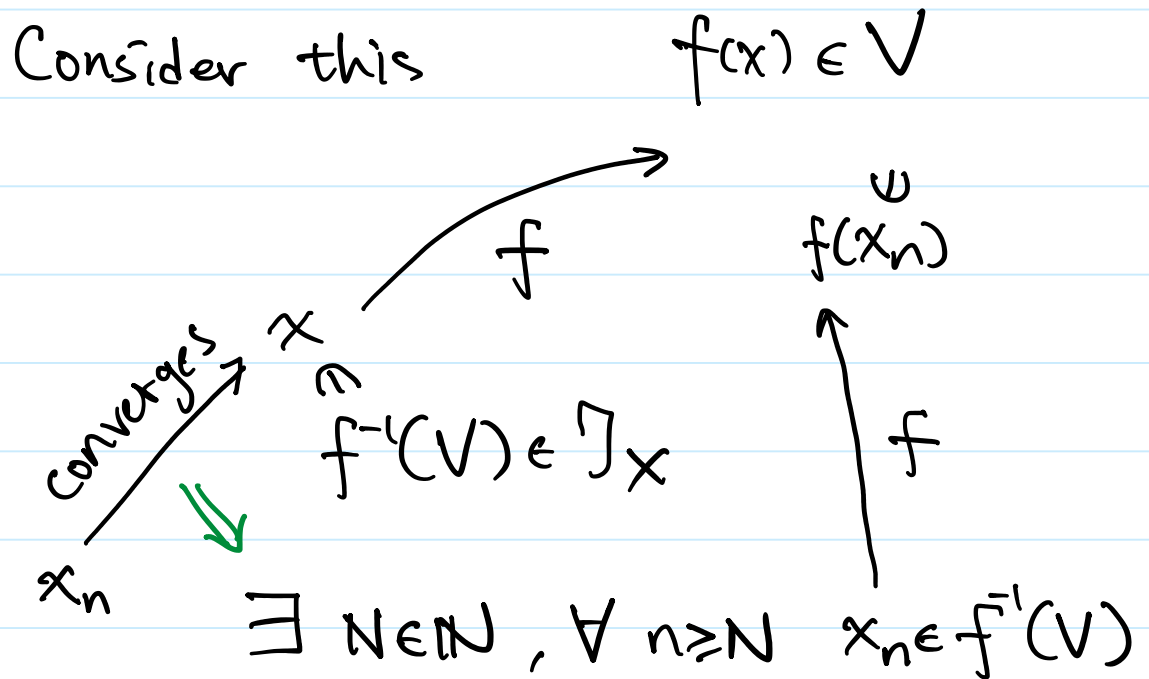 Consider this f(x) ∈ V
f
⋓
f(xₙ)
converges
x
∩
f⁻¹(V) ∈ 𝔍ₓ
f
xₙ
∃ N∈ℕ, ∀ n≥N xₙ∈ f⁻¹(V)